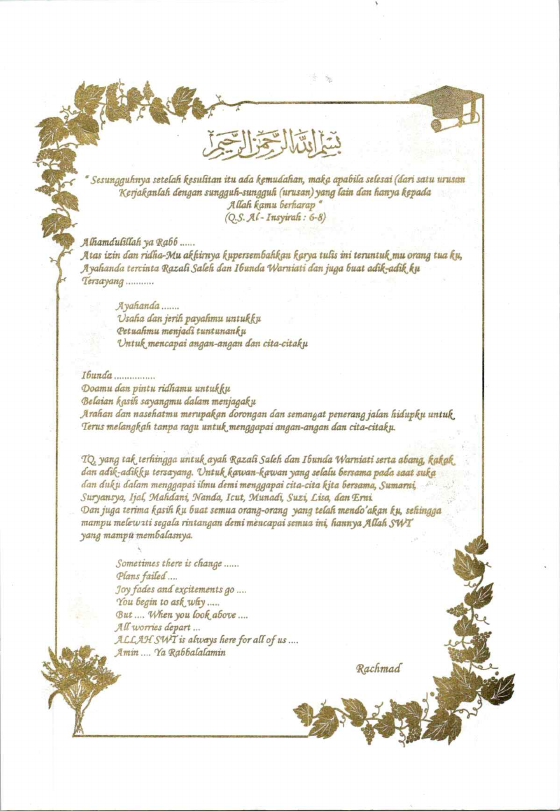 بسم الله الرحمن الرحيم
" Sesungguhnya setelah kesulitan itu ada kemudahan, maka apabila selesai (dari satu urusan
Kerjakanlah dengan sungguh-sungguh (urusan) yang lain dan hanya kepada
Allah kamu berharap "
(Q.S. Al - Insyirah : 6-8)
Alhamdulillah ya Rabb ......
Atas izin dan ridha-Mu akhirnya kupersembahkan karya tulis ini teruntuk mu orang tua ku,
Ayahanda tercinta Razali Saleh dan Ibunda Warniati dan juga buat adik-adik ku
Tersayang ...........
Ayahanda ........
Usaha dan jerih payahmu untukku
Petuahmu menjadi tuntunanku
Untuk mencapai angan-angan dan cita-citaku
Ibunda ................
Doamu dan pintu ridhamu untukku
Belaian kasih sayangmu dalam menjagaku
Arahan dan nasehatmu merupakan dorongan dan semangat penerang jalan hidupku untuk
Terus melangkah tanpa ragu untuk menggapai angan-angan dan cita-citaku.
TQ, yang tak terhingga untuk ayah Razali Saleh dan Ibunda Warniati serta abang, kakak
dan adik-adikku tersayang. Untuk kawan-kawan yang selalu bersama pada saat suka
dan duku dalam menggapai ilmu demi menggapai cita-cita kita bersama, Sumarni,
Suryansya, Ijal, Mahdani, Nanda, Icut, Munadi, Suzi, Lisa, dan Erni
Dan juga terima kasih ku buat semua orang-orang yang telah mendo'akan ku, sehingga
mampu melewati segala rintangan demi mencapai semua ini, hannya Allah SWT
yang mampu membalasnya.
Sometimes there is change ......
Plans failed ....
Joy fades and excitements go ....
You begin to ask why .....
But .... When you look above ....
All worries depart ...
ALLAH SWT is always here for all of us ....
Amin .... Ya Rabbalalamin
Rachmad